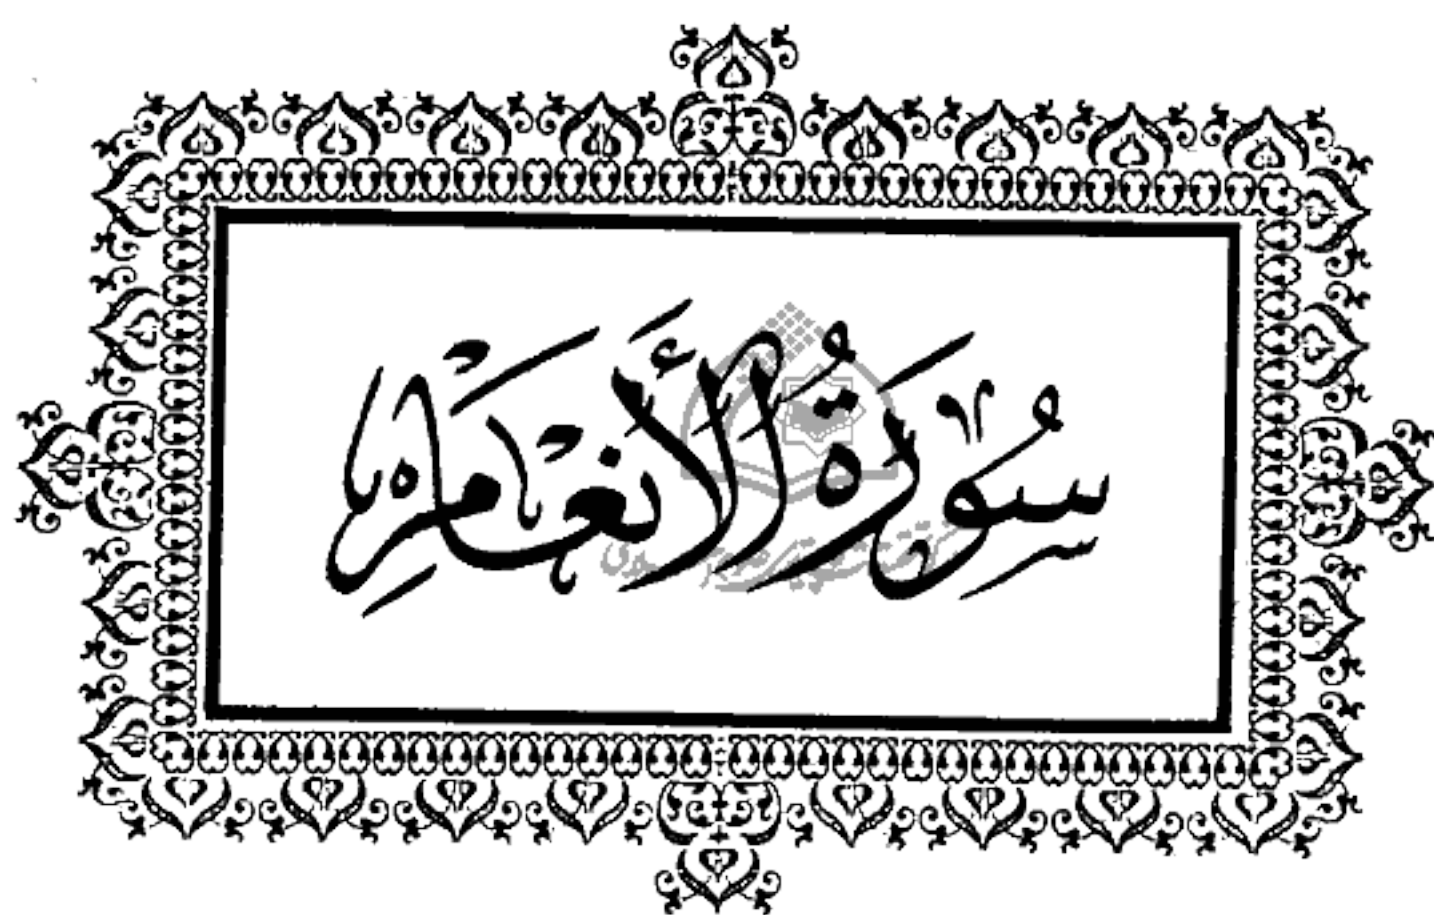 سُورَةُ الْأَنْعَامِ